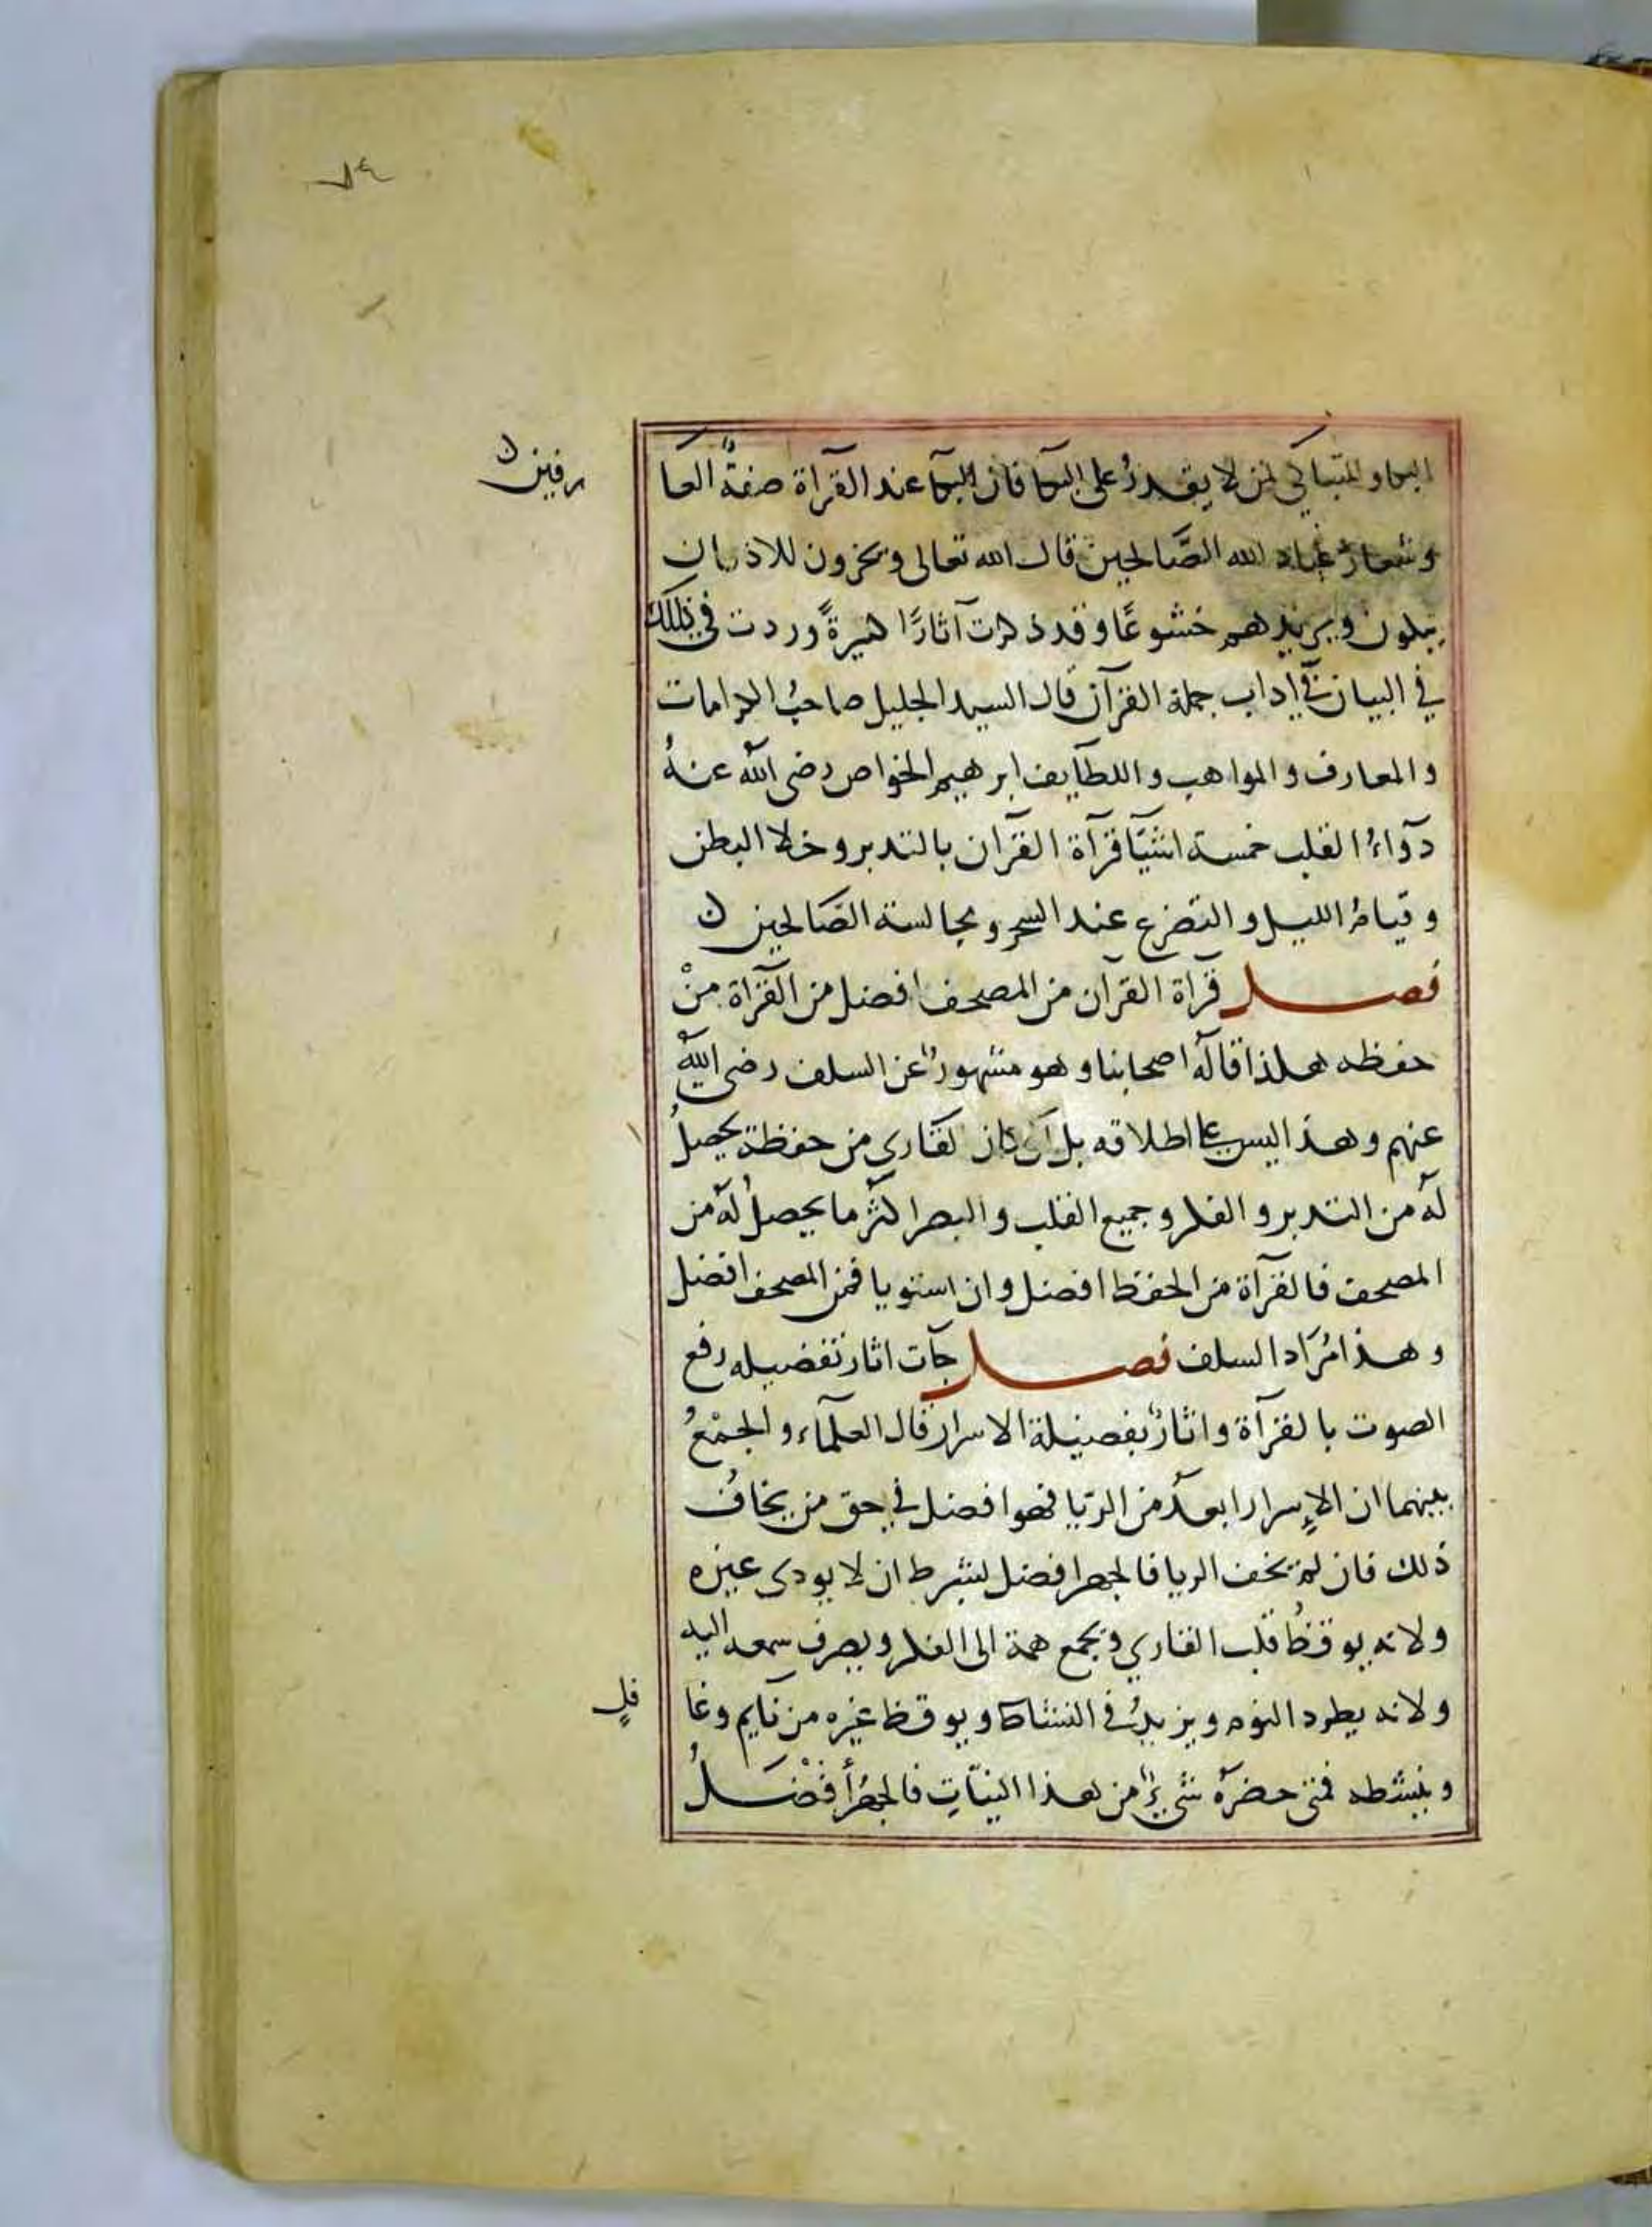 ٧٤
البكا والتباكي لمن لا يقدرُ على البكا فان البكآ عند القرآة صفةُ العا
رفين ن
وشعارُ عباد الله الصَّالحين قال الله تعالى ويخرون للاذقان
يبكون ويزيدهم خشوعًا وقد ذكرت آثارًا كثيرةً وردت في ذلك
في البيان في اداب حملة القرآن قال السيد الجليل صاحبُ الكرامات
والمعارف والمواهب واللطآيف ابرهيم الخواص رضى الله عنهُ
دوآءُ القلب خمسة اشيآ قرآة القرآن بالتدبر وخلا البطن
وقيامُ الليل والتضرع عند السحر ومجالسة الصَالحين ن
فصل قرآة القرآن من المصحف افضل من القرآة منْ
حفظه هكذا قالهُ اصحابنا وهو مشهورٌ عن السلف رضى اللهُ
عنهم وهذا ليس على اطلاقه بل ان كان القارى من حفظة يحصلُ
لهُ من التدبر والفكر وجميع القلب والبصر اكثر ما يحصلُ لهُ من
المصحف فالقرآة من الحفظ افضل وان استويا فمن المصحف افضل
وهذا مُرَاد السلف فصل جآت اثار تفضيله رفع
الصوت بالقرآة واثارٌ بفضيلة الاسرار قال العلمآء والجمْعُ
بينهما ان الإسرار ابعدُ من الريّا فهو افضل في حق من يخافُ
ذلك فان لم يخف الريا فالجهر افضل لشرط ان لا يودى غيره
ولانه يوقظُ قلب القاري ويجمع همة الى الفكر ويصرف سمعه اليه
ولانه يطرد النوم ويزيدُ في النشاط ويوقظ غيره من نآيم وغا
فلٍ
وينشطه فمتى حضرهُ شيءٌ من هذا النيّاتِ فالجهرُ أفْضَلُ